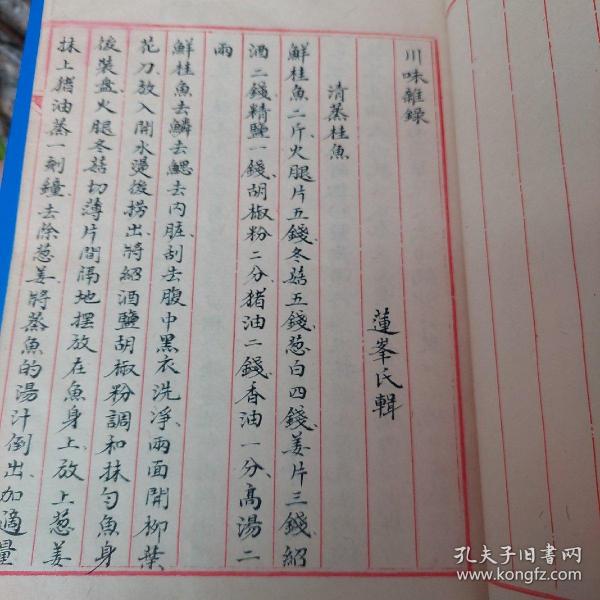 川味雜錄
蓮峯氏輯
清蒸桂魚
鮮桂魚二斤、火腿片五錢、冬菇五錢、葱白四錢、姜片三錢、紹
酒二錢、精鹽一錢、胡椒粉二分、猪油二錢、香油一分、高湯二
兩
鮮桂魚去鱗去鰓去内脏、刮去腹中黑衣洗净、兩面開柳葉
花刀、放入開水燙後捞出、將紹酒鹽胡椒粉調和抹匀魚身
後裝盘、火腿冬菇切薄片間隔地擺放在魚身上、放上葱姜
抹上猪油蒸一刻鐘、去除葱姜、將蒸魚的湯汁倒出、加適量
孔夫子旧書网
www.kongfz.com